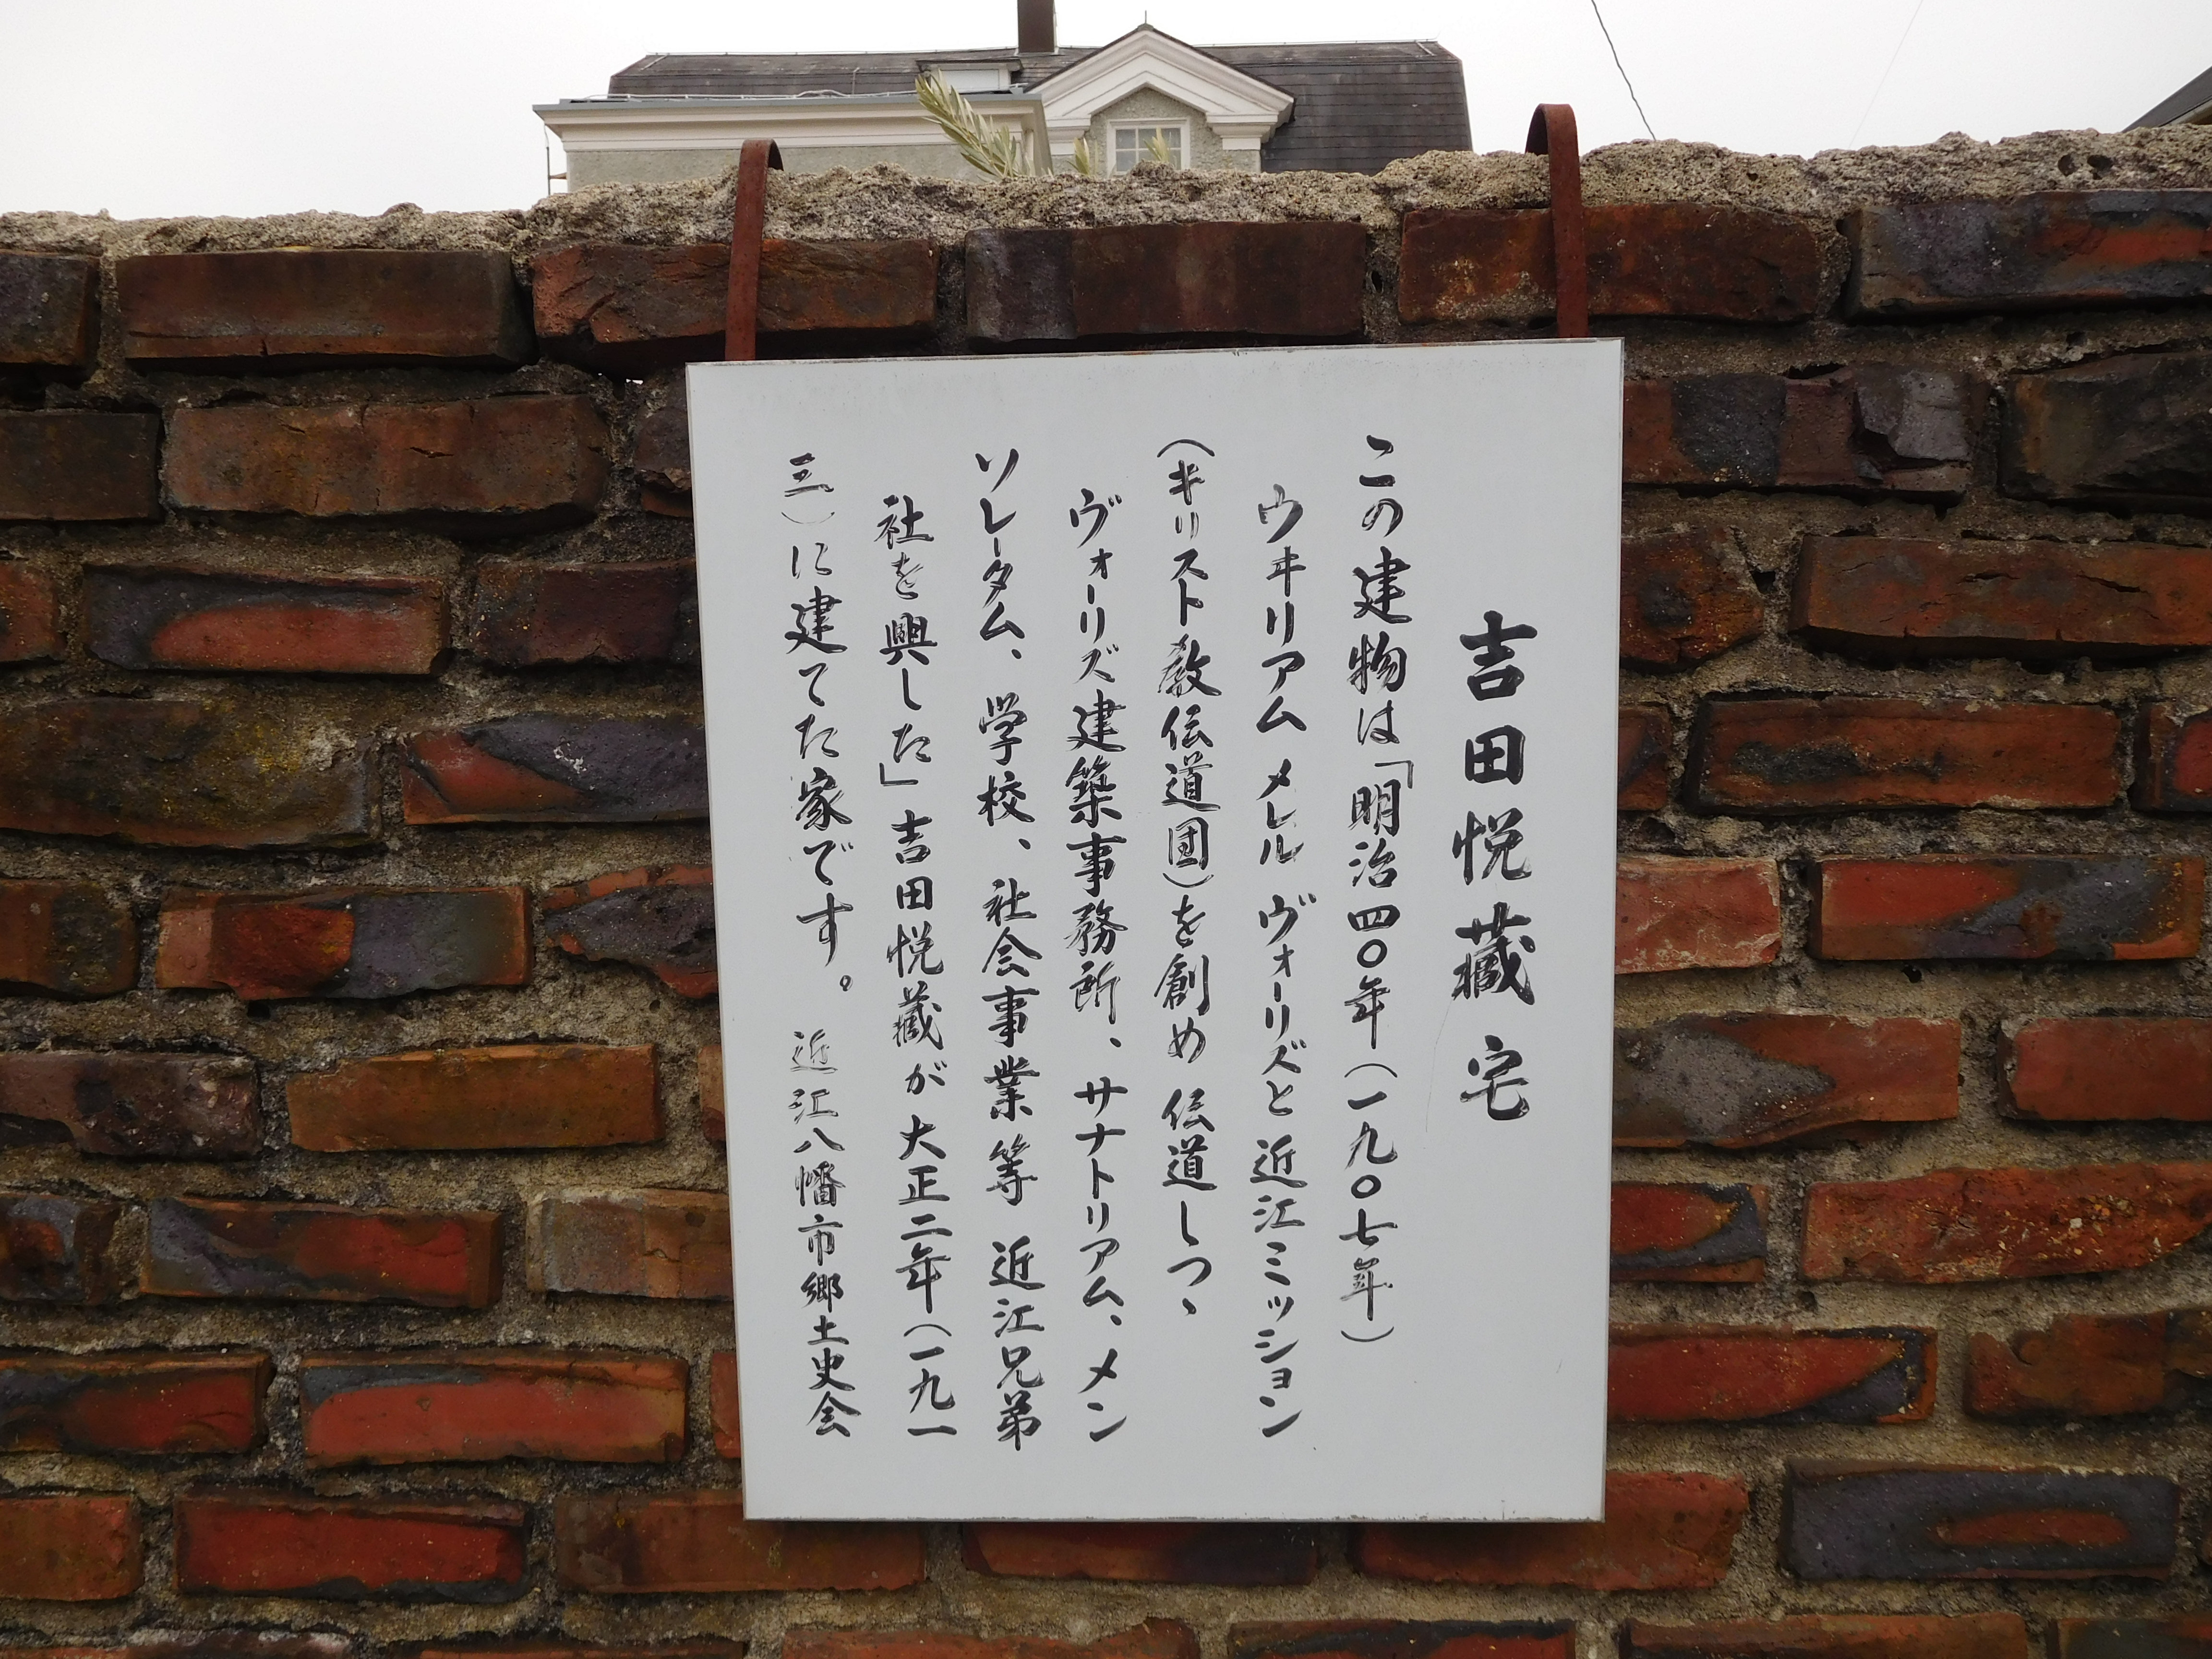 吉田悦蔵宅
この建物は「明治四〇年(一九〇七年)
ウヰリアム メレル ヴォーリズと近江ミッション
(キリスト教伝道団)を創め 伝道しつヽ
ヴォーリズ建築事務所、サナトリアム、メン
ソレータム、学校、社会事業等 近江兄弟
社を興した」吉田悦蔵が大正二年(一九一
三)に建てた家です。 近江八幡市郷土史会